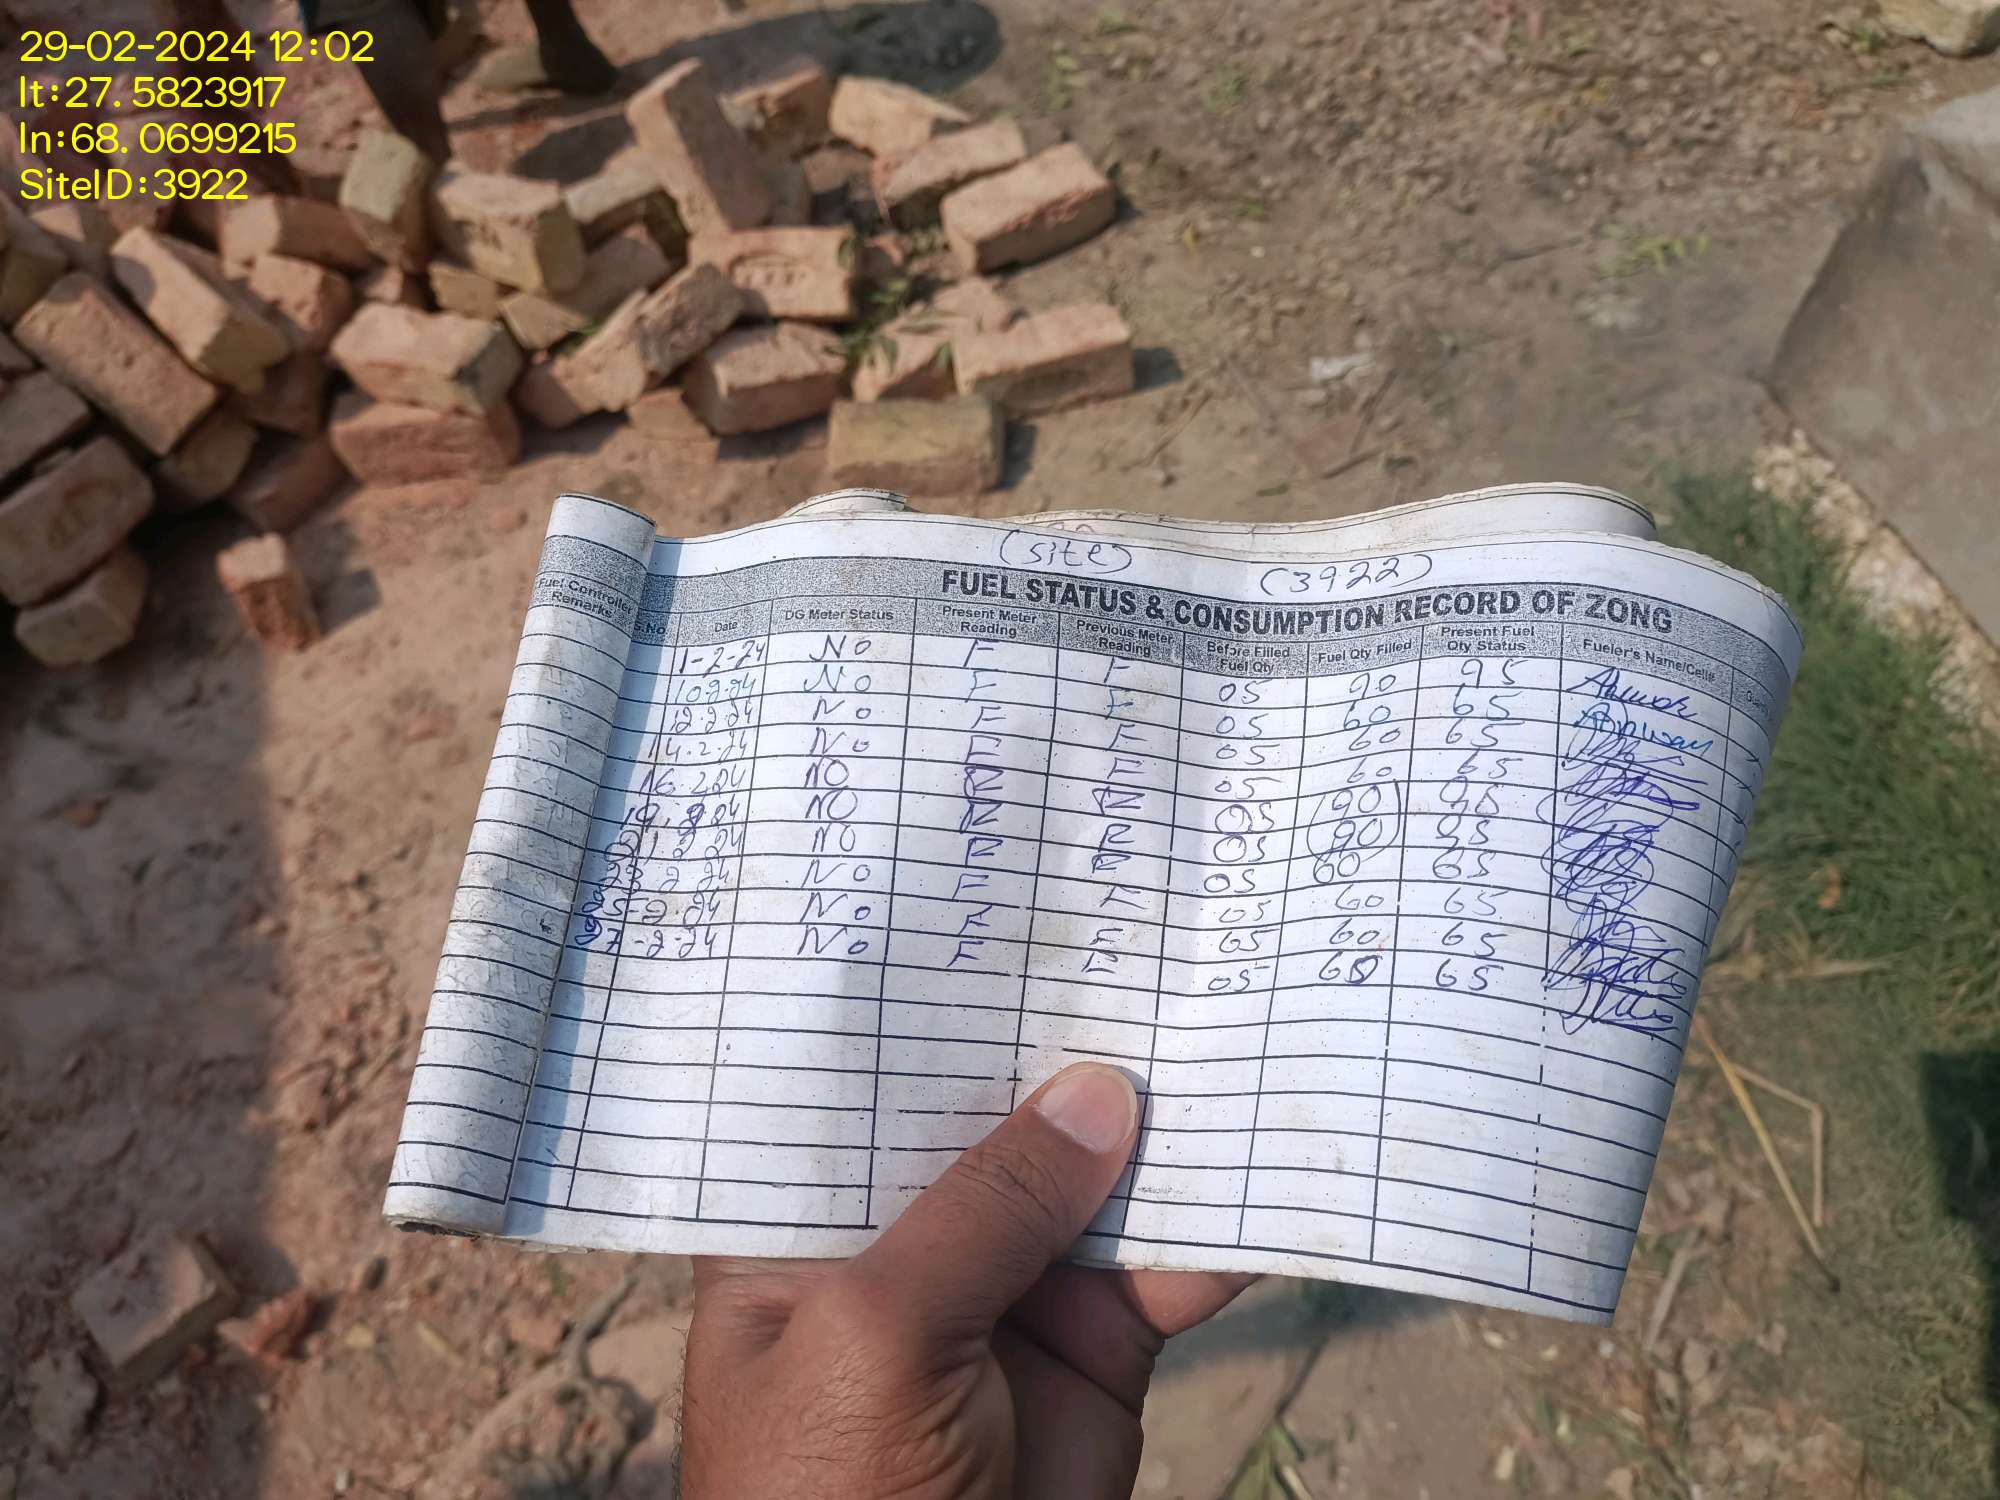 29-02-2024 12:02
lt:27.5823917
ln:68.0699215
SiteID:3922
(site) (3922)
FUEL STATUS & CONSUMPTION RECORD OF ZONG
Fuel Controller Remarks S.No. Date DG Meter Status Present Meter Reading Previous Meter Reading Before Filled Fuel Qty Fuel Qty Filled Present Fuel Qty Status Fueler's Name/Cell#
1-2-24 No F F 05 90 95
10-2-24 No F F 05 60 65
12-2-24 No F F 05 60 65
14-2-24 No F F 05 60 65
16-2-24 NO R R 05 90 95
19-2-24 NO R R 05 90 95
21-2-24 NO R R 05 60 65
23-2-24 No F F 05 60 65
25-2-24 No F F 05 60 65
27-2-24 No F F 05 60 65